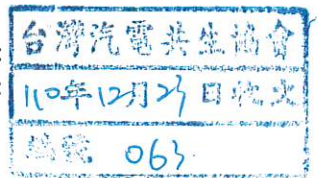 台灣汽電共生協會
110年12月23日收文
編號 063